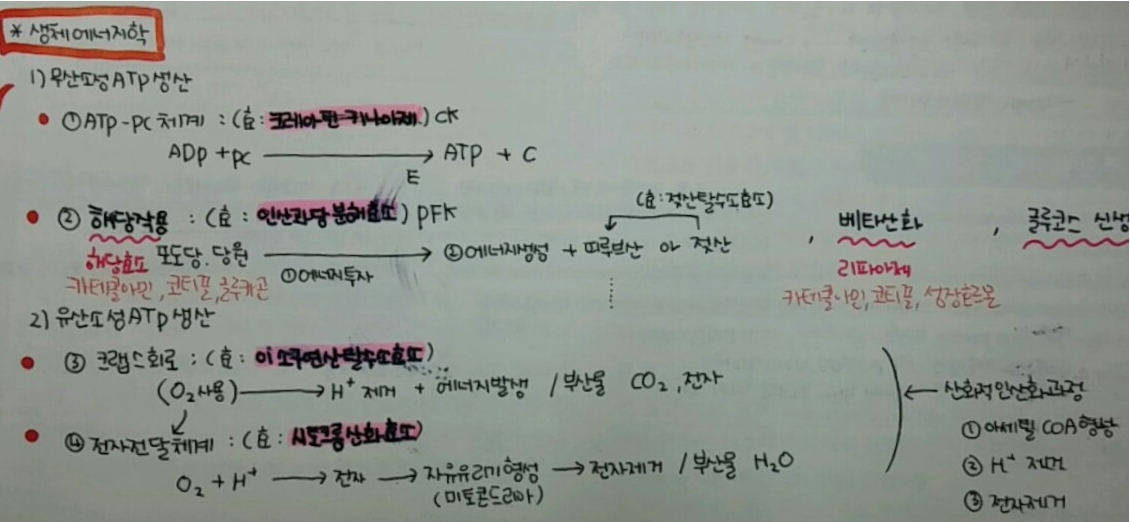 * 생체에너지학
1) 무산소성 ATP 생산
① ATP-PC 체계 : (효 : 크레아틴 키나아제) CK
ADP + PC → ATP + C
E
② 해당작용 : (효 : 인산과당분해효소) PFK
(효 : 젖산탈수소효소)
해당효소 포도당. 당원 → ② 에너지생성 + 피루브산 or 젖산
① 에너지투자
카테콜아민, 코티졸, 글루카곤
, 베타산화 , 글루코스 신생
리파아제
카테콜아민, 코티졸, 성장호르몬
2) 유산소성 ATP 생산
③ 크랩스회로 : (효 : 이소구연산탈수소효소)
(O₂ 사용) → H⁺ 제거 + 에너지발생 / 부산물 CO₂, 전자
④ 전자전달체계 : (효 : 시토크롬산화효소)
O₂ + H⁺ → 전자 → 자유유리기형성 → 전자제거 / 부산물 H₂O
(미토콘드리아)
← 산화적인산화과정
① 아세틸 COA 형성
② H⁺ 제거
③ 전자제거